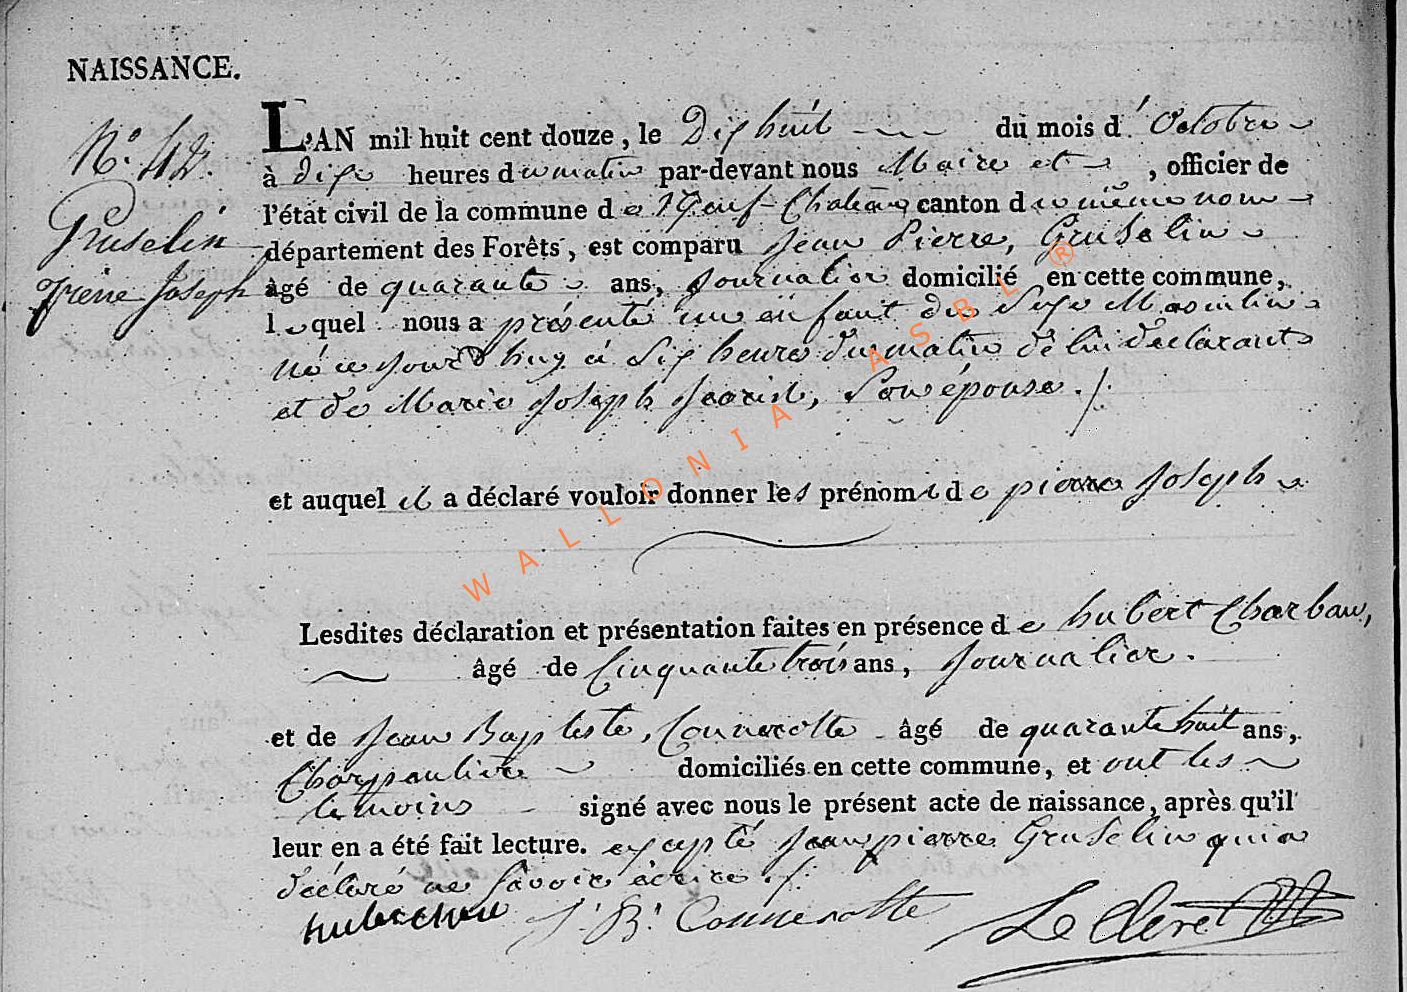 NAISSANCE.
N.° 42.
Gruselin
Pierre Joseph
L'AN mil huit cent douze, le Dix huit du mois d'Octobre
à dix heures du matin par-devant nous Maire et , officier de
l'état civil de la commune de Neuf-Chateau canton du même nom
département des Forêts, est comparu Jean Pierre, Gruselin
âgé de quarante ans, Journalier domicilié en cette commune,
lequel nous a présenté un enfant du Sexe Masculin
né ce jourd'huy à Six heures du matin de lui déclarant
et de Marie Joseph , Son épouse ./.
et auquel il a déclaré vouloir donner les prénoms de pierre Joseph
Lesdites déclaration et présentation faites en présence de hubert Charbau,
âgé de Cinquante trois ans, Journalier.
et de Jean Baptiste, Connerotte âgé de quarante huit ans,
Charpantier domiciliés en cette commune, et ont les
temoins signé avec nous le présent acte de naissance, après qu'il
leur en a été fait lecture. excepté Jean pierre Gruselin qui a
déclaré ne Savoir écrire ./.
J. B. Connerotte
WALLONIA ASBL ®